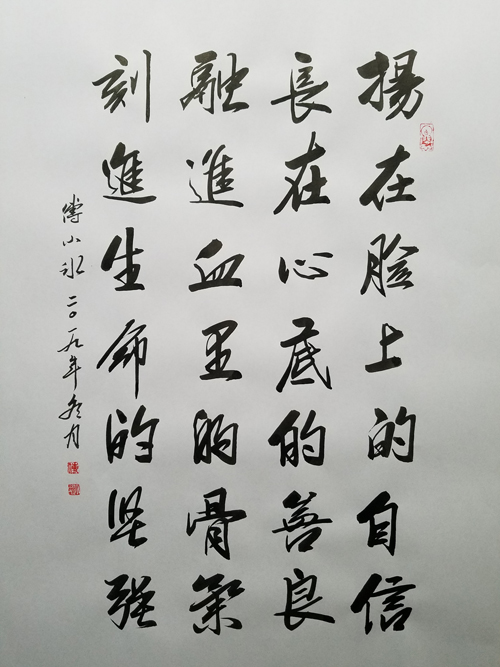 揚在脸上的自信
長在心底的善良
融進血里的骨氣
刻進生命的坚强
傅小冰二〇一九年冬月